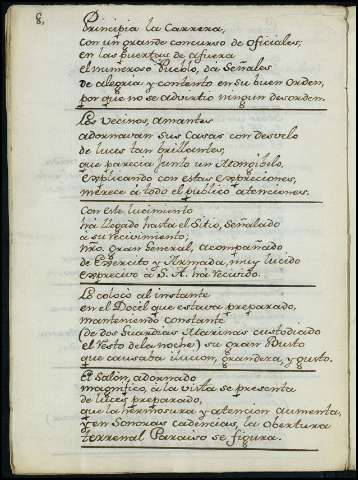 8,
Principia la Carrera,
con un grande concurso de oficiales,
en las puertas de afuera
el numeroso Pueblo, dá Señales
de alegria y contento en su buen orden,
por que no se advirtio ningun desorden.
Los Vecinos, amantes
adornavan sus Casas con desvelo
de luces tan brillantes,
que parecia junto un Mongibelo,
explicando con estas expreciones,
merece à todo el publico atenciones.
Con este lucimiento
há llegado hasta el Sitio, Señalado
à su recivimiento,
nro. gran General, acompañado
de Exercito y Armada, muy lucido
exprecivo à S. A. há recivido.
Lo colocò al instante
en el Docèl que estava preparado,
manteniendo constante
(de dos Guardias Marinas custodiado
el resto de la noche) su gran Busto
que causaba ilucion, grandeza, y gusto.
El Salòn, adornado
magnifico, à la vista se presenta
de luces preparado,
que la hermosura y atencion aumenta,
y en Sonoras cadencias, la obertura
terrenal Paraiso se figura.